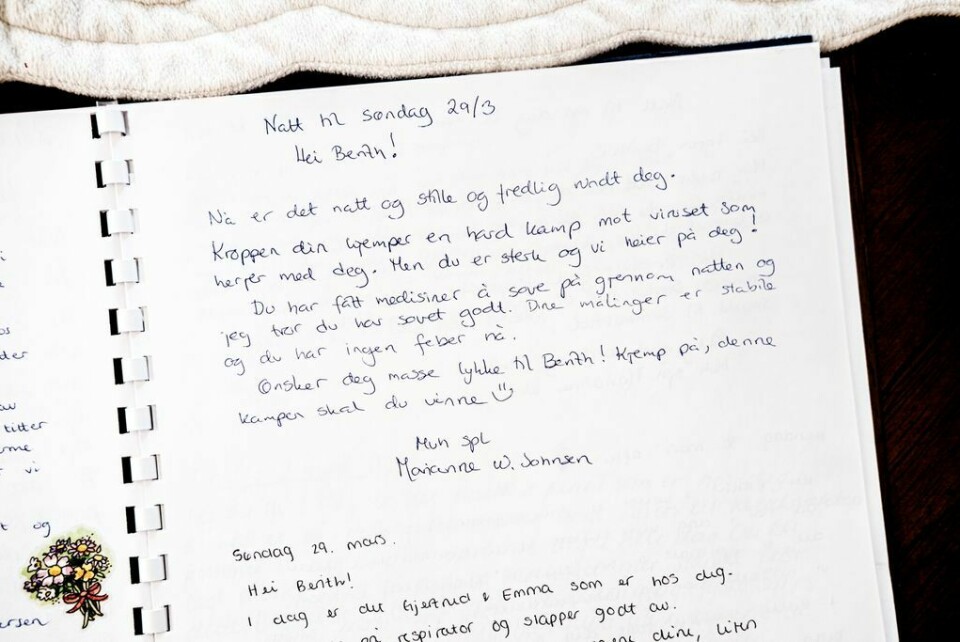 Natt til søndag 29/3
Hei Benth!
Nå er det natt og stille og fredlig rundt deg.
Kroppen din kjemper en hard kamp mot viruset som
herjer med deg. Men du er sterk og vi heier på deg!
Du har fått medisiner å sove på gjennom natten og
jeg tror du har sovet godt. Dine målinger er stabile
og du har ingen feber nå.
Ønsker deg masse lykke til Benth! Kjemp på, denne
kampen skal du vinne
Mvh spl
Marianne W. Johnsen
Søndag 29. mars.
Hei Benth!
I dag er det Gjertrud & Emma som er hos deg.
på respirator og slapper godt av.
dine, liten
titter
vi
og